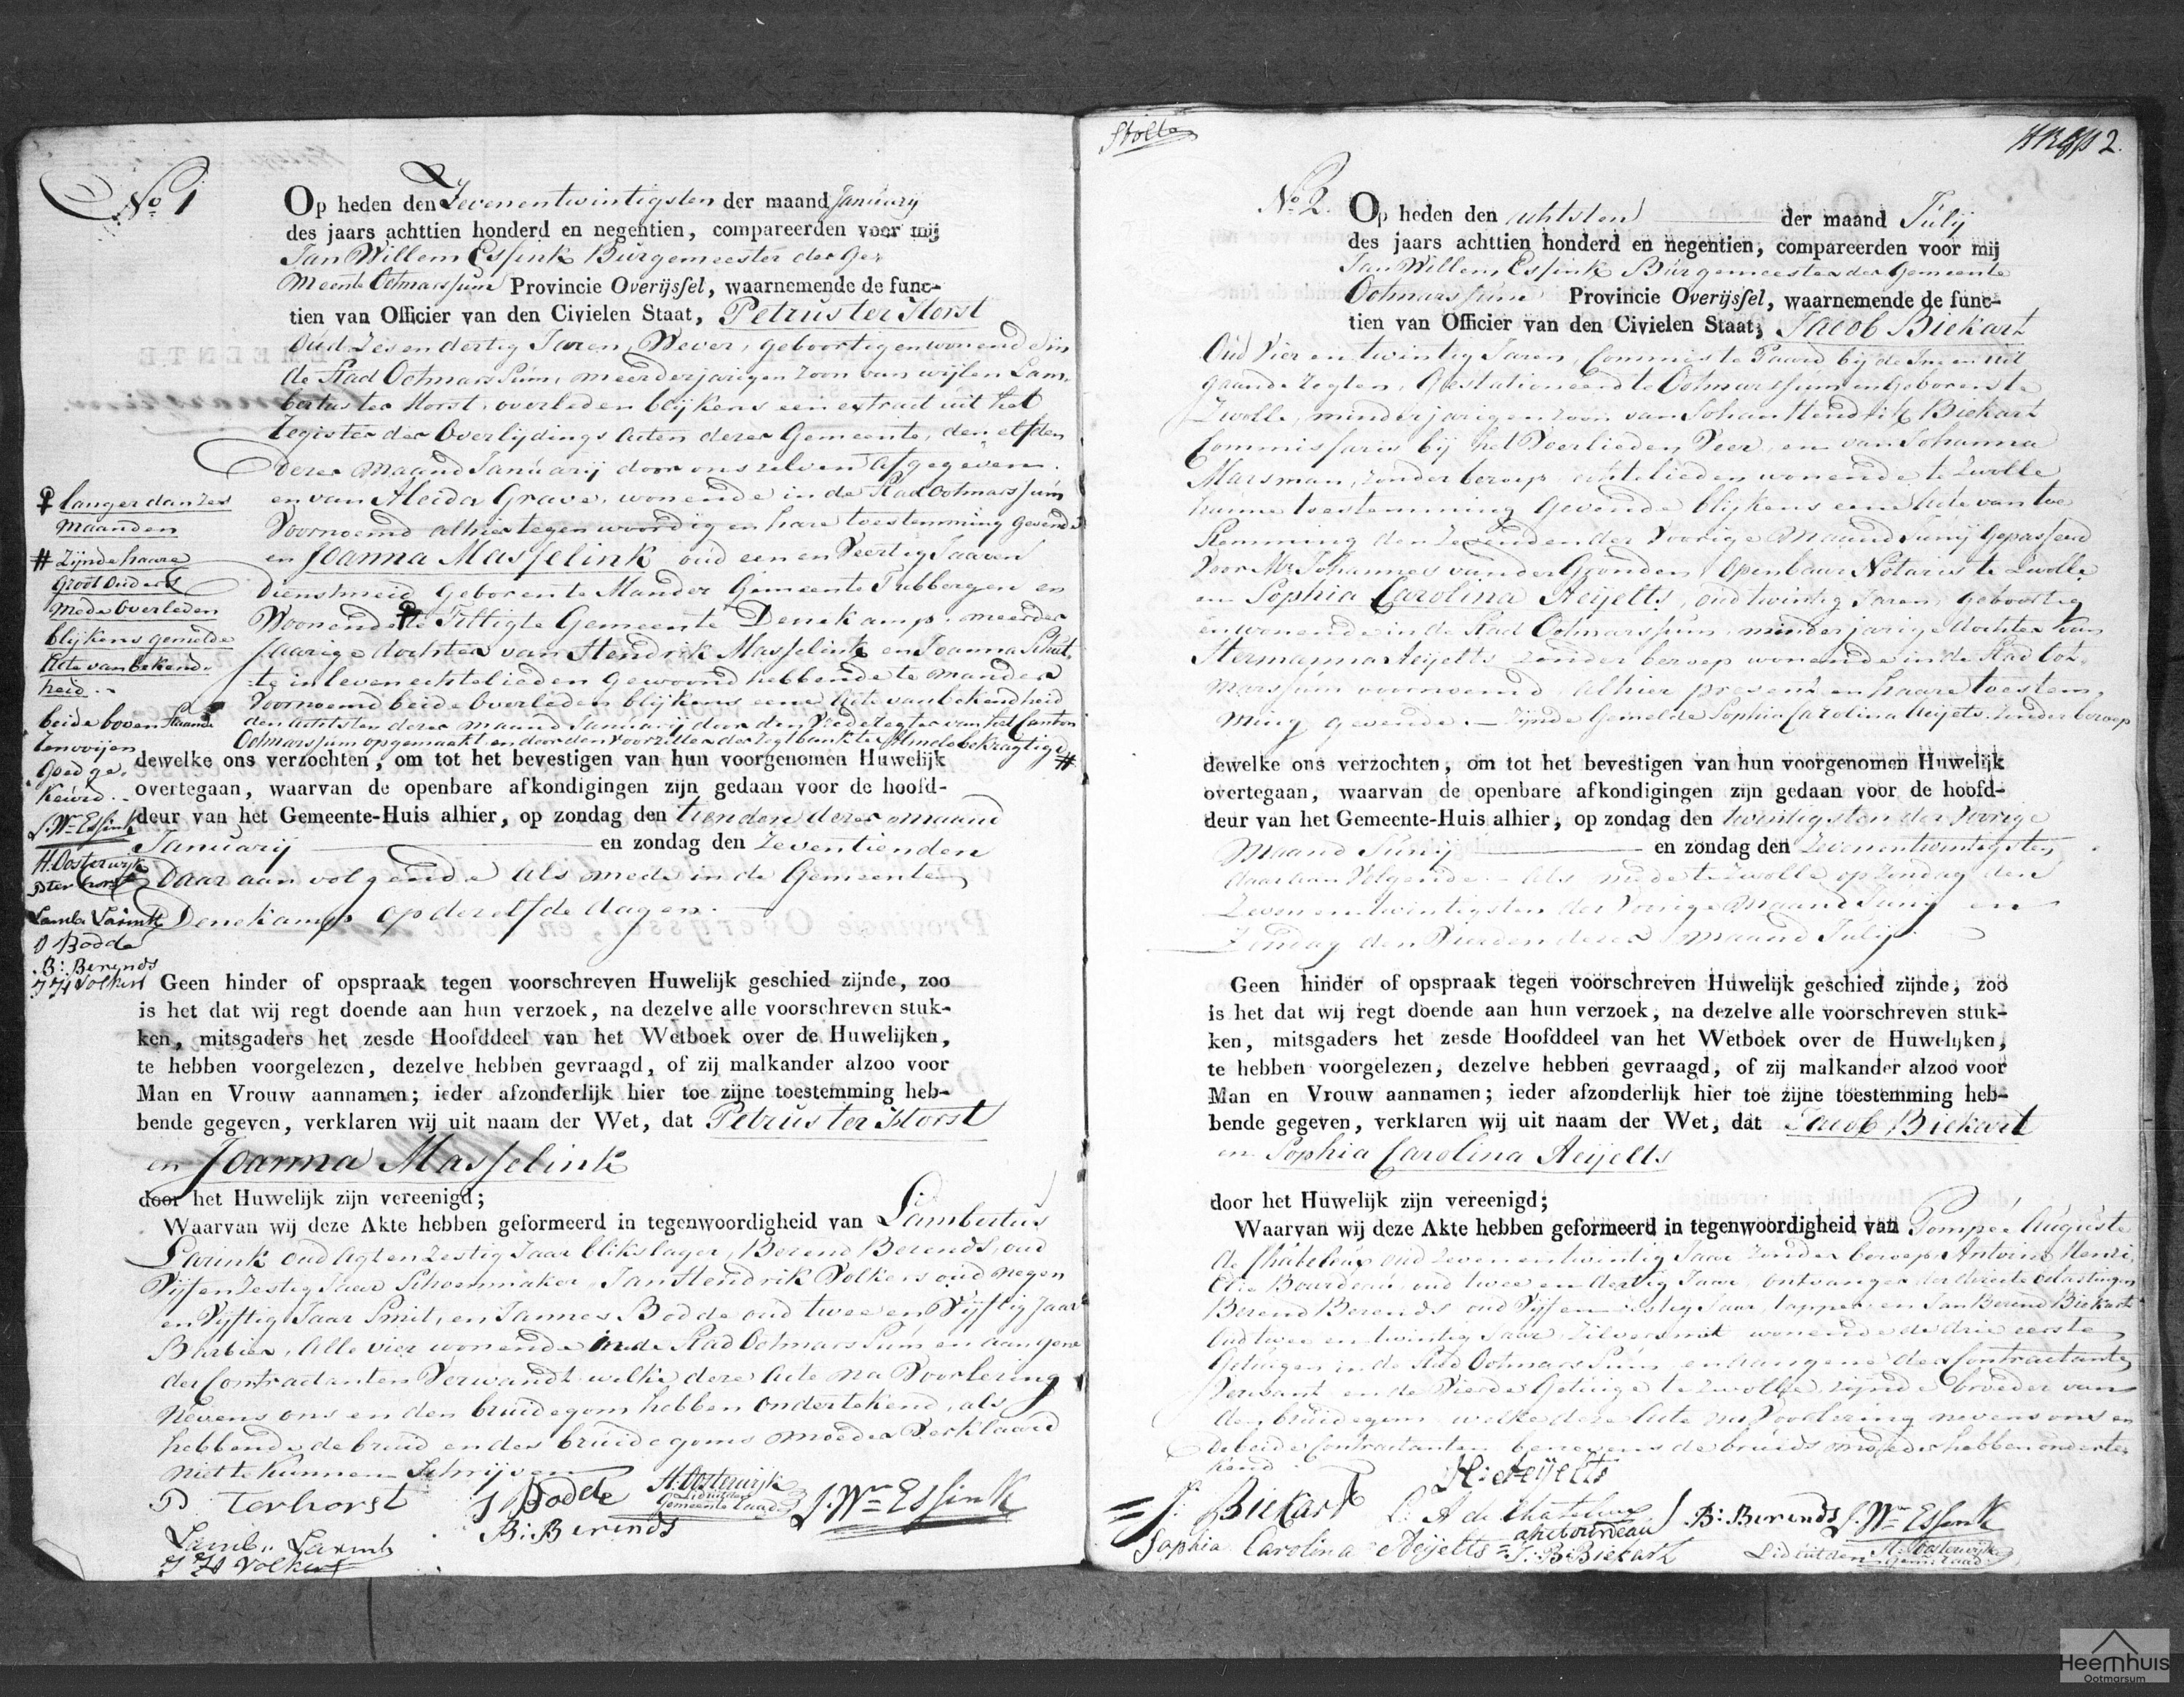 No 1
Op heden den Zevenentwintigsten der maand Januarij
des jaars achttien honderd en negentien, compareerden voor mij
Jan Willem Essink Burgemeester der Ge-
meente Ootmarssum Provincie Overijssel, waarnemende de func-
tien van Officier van den Civielen Staat, Petrus ter Horst
Oud Zesendertig Jaren, Wever, geboortig en wonende in
de Stad Ootmarssum, meerderjarigen Zoon van wijlen Lam-
bertus ter Horst, overleden blijkens een extract uit het
Register der Overlijdings Acten dezer Gemeente, den elfden
dezer Maand Januarij door ons zelven afgegeven.
en van Aleida Grave, wonende in de Stad Ootmarssum
Voornoemd alhier tegenwoordig en hare toestemming gevende
en Joanna Masselink oud eenenveertig Jaaren
Dienstmeid geboren te Mander Gemeente Tubbergen en
Woonende te Tiltigte Gemeente Denekamp, meerder
Jaarige dochter van Hendrik Masselink en Joanna Schut-
te in leven echtelieden gewoond hebbende te Mander
Voornoemd beide Overleden blijkens eene Acte van bekendheid
den achtsten dezer maand Januarij door den Vrederegter van het Canton
Ootmarssum opgemaakt en door den Voorzitter der Regtbank te Almelo bekragtigd #
langer dan zes
maanden
# Zijnde haare
Groot Ouders
mede Overleden
blijkens gemelde
Acte van bekend-
heid.
beide boven staande
renvoijen
Goed ge-
keurd.
J. Wm Essink
H. Oosterwijk
P ter horst
Lamb. Larink
J Bodde
B: Berends
J H Volkers
dewelke ons verzochten, om tot het bevestigen van hun voorgenomen Huwelijk
overtegaan, waarvan de openbare afkondigingen zijn gedaan voor de hoofd-
deur van het Gemeente-Huis alhier, op zondag den tienden dezer maand
Januarij en zondag den Zeventienden
Daar aan volgende als mede in de Gemeente
Denekamp op dezelfde dagen.
Geen hinder of opspraak tegen voorschreven Huwelijk geschied zijnde, zoo
is het dat wij regt doende aan hun verzoek, na dezelve alle voorschreven stuk-
ken, mitsgaders het zesde Hoofddeel van het Wetboek over de Huwelijken,
te hebben voorgelezen, dezelve hebben gevraagd, of zij malkander alzoo voor
Man en Vrouw aannamen; ieder afzonderlijk hier toe zijne toestemming heb-
bende gegeven, verklaren wij uit naam der Wet, dat Petrus ter Horst
en Joanna Masselink
door het Huwelijk zijn vereenigd;
Waarvan wij deze Akte hebben geformeerd in tegenwoordigheid van Lambertus
Larink oud Agtenzestig Jaar blikslager, Berend Berends, oud
Vijfenzestig Jaar Schoenmaker, Jan Hendrik Volkers oud negen
en Vijftig Jaar Smit, en Jannes Bodde oud twee en Vijftig Jaar
Barbier, Alle vier wonende in de Stad Ootmarssum en aan gene
der Contractanten Verwandt welke deze Acte na Voorlezing
Nevens ons en den bruidegom hebben Ondertekend, als
hebbende de bruid en des bruidegoms Moeder Verklaard
niet te kunnen Schrijven
P. Terhorst
J Bodde
H. Oosterwijk
Lid uit den
Gemeente Raad
J. Wm Essink
Lamb. Larink
B: Berends
J H Volkers
Stolte
2.
No 2.
Op heden den achtsten der maand Julij
des jaars achttien honderd en negentien, compareerden voor mij
Jan Willem Essink Burgemeester der Gemeente
Ootmarssum Provincie Overijssel, waarnemende de func-
tien van Officier van den Civielen Staat, Jacob Biekart
Oud Vier en twintig Jaren, Commis te Paard bij de In en uit
gaande Regten, Gestationeerd te Ootmarssum en Geboren te
Zwolle, minderjarigen zoon van Johan Hendrik Biekart
Commissaris bij het Veerlieden Veer, en van Johanna
Marsman, zonder beroep echtelieden wonende te Zwolle
hunne toestemming Gevende blijkens eene Acte van toe
stemming den Zevenden der Voorige Maand Junij Gepasseerd
Voor Mr Johannes van der Gronden, Openbaar Notaris te Zwolle
en Sophia Carolina Heijelts, oud twintig Jaren, Geboortig
en wonende in de Stad Ootmarssum, minderjarige dochter van
Hermanna Heijelts zonder beroep wonende in de Stad Oot-
marssum voornoemd, alhier present en haare toestem-
ming gevende. — Zijnde Gemelde Sophia Carolina Heijelts Zonder beroep
dewelke ons verzochten, om tot het bevestigen van hun voorgenomen Huwelijk
overtegaan, waarvan de openbare afkondigingen zijn gedaan voor de hoofd-
deur van het Gemeente-Huis alhier, op zondag den twintigsten der Voorige
Maand Junij en zondag den Zevenentwintigsten
daar aan Volgende. — Als mede te Zwolle op Zondag den
Zevenentwintigsten der Vorige Maand Junij en
Zondag den Vierden dezer Maand Julij.
Geen hinder of opspraak tegen voorschreven Huwelijk geschied zijnde, zoo
is het dat wij regt doende aan hun verzoek, na dezelve alle voorschreven stuk-
ken, mitsgaders het zesde Hoofddeel van het Wetboek over de Huwelijken,
te hebben voorgelezen, dezelve hebben gevraagd, of zij malkander alzoo voor
Man en Vrouw aannamen; ieder afzonderlijk hier toe zijne toestemming heb-
bende gegeven, verklaren wij uit naam der Wet, dat Jacob Biekart
en Sophia Carolina Heijelts
door het Huwelijk zijn vereenigd;
Waarvan wij deze Akte hebben geformeerd in tegenwoordigheid van Pompée Auguste
de Chateleux oud Zevenentwintig Jaar zonder beroep, Antoine Henri
Elie Bourdeau, oud twee en dertig Jaar, Ontvanger der directe belastingen
Berend Berends oud Vijfenzestig Jaar, tapper, en Jan Berend Biekart
Oud twee en twintig Jaar Zilversmit wonende de drie eerste
Getuigen in de Stad Ootmarssum en aan gene der Contractanten
Verwant en de Vierde Getuige te Zwolle, zijnde broeder van
den bruidegom welke deze Acte na Voorlezing nevens ons en
de beide Contractanten benevens de bruids moeder hebben onderte-
kend.
H: Heijelts
J: Biekart
P: A de Chateleux
B: Berends
J. Wm Essink
Sophia Carolina Heijelts
ahebourdeau
J: B: Biekart
Lid uit den
H. Oosterwijk
Gem: raad
Heemhuis
Ootmarsum